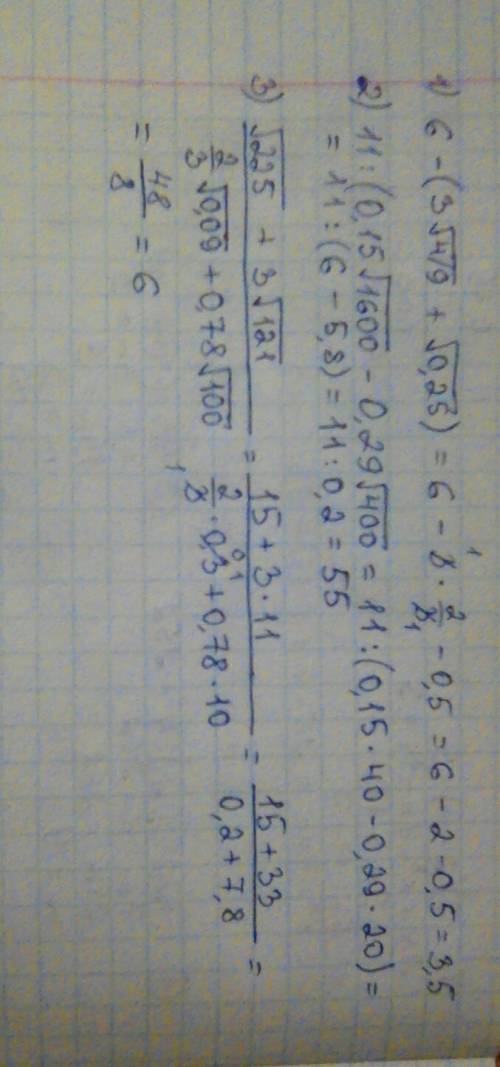 1) 6 - (3√4/9 + √0,25) = 6 - 3 · 2/3 - 0,5 = 6 - 2 - 0,5 = 3,5
2) 11 : (0,15√1600 - 0,29√400 = 11 : (0,15 · 40 - 0,29 · 20) =
= 11 : (6 - 5,8) = 11 : 0,2 = 55
3) (√225 + 3√121) / (2/3 √0,09 + 0,78√100) = (15 + 3 · 11) / (2/3 · 0,3 + 0,78 · 10) = (15 + 33) / (0,2 + 7,8) =
= 48/8 = 6